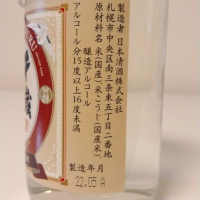 製造者 日本清酒株式会社
札幌市中央区南三条東五丁目二番地
原材料名 米(国産)、米こうじ(国産米)、
醸造アルコール
アルコール分15度以上16度未満
製造年月
22.05 A